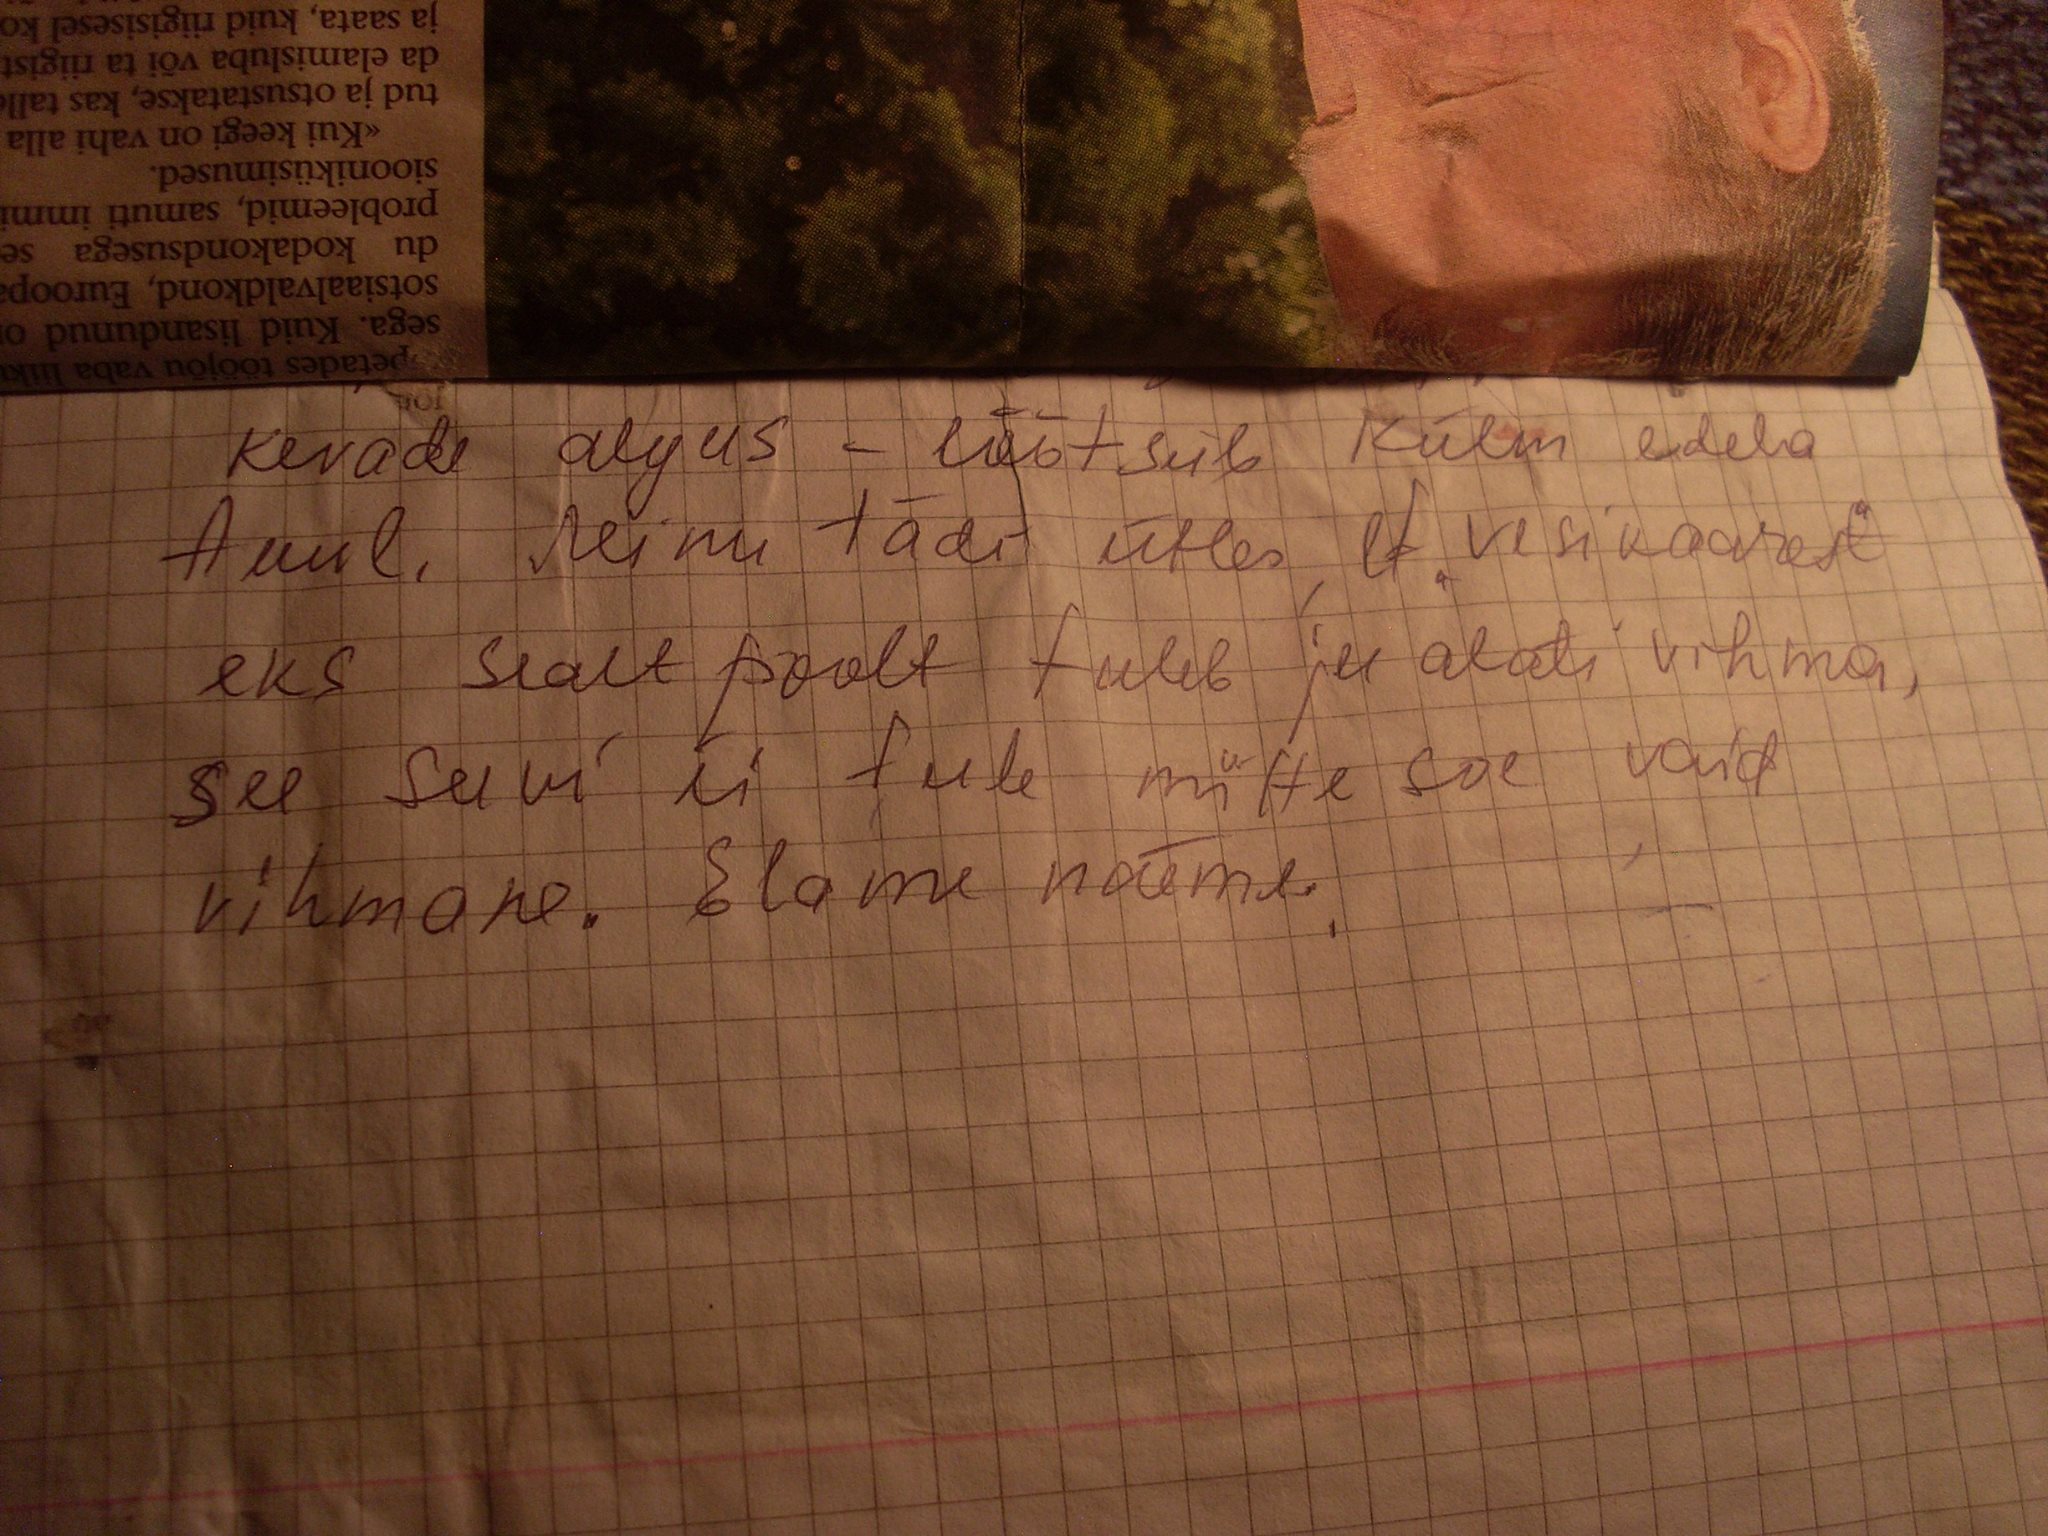 ja saata, kuid riigisisesel ko
da elamisluba või ta riigist
tud ja otsustatakse, kas talle
«Kui keegi on vahi alla
siooniküsimused.
probleemid, samuti immi
du kodakondsusega se
sotsiaalvaldkond, Euroopa
sega. Kuid lisandunud on
petades tööjõu vaba liiku
kevade algus – lõõtsub külm edela
tuul. Meinu tädi ütles, et „vesikaarest“
eks sealt poolt tuleb ju alati vihma,
see suvi ei tule mitte soe vaid
vihmane. Elame näeme.